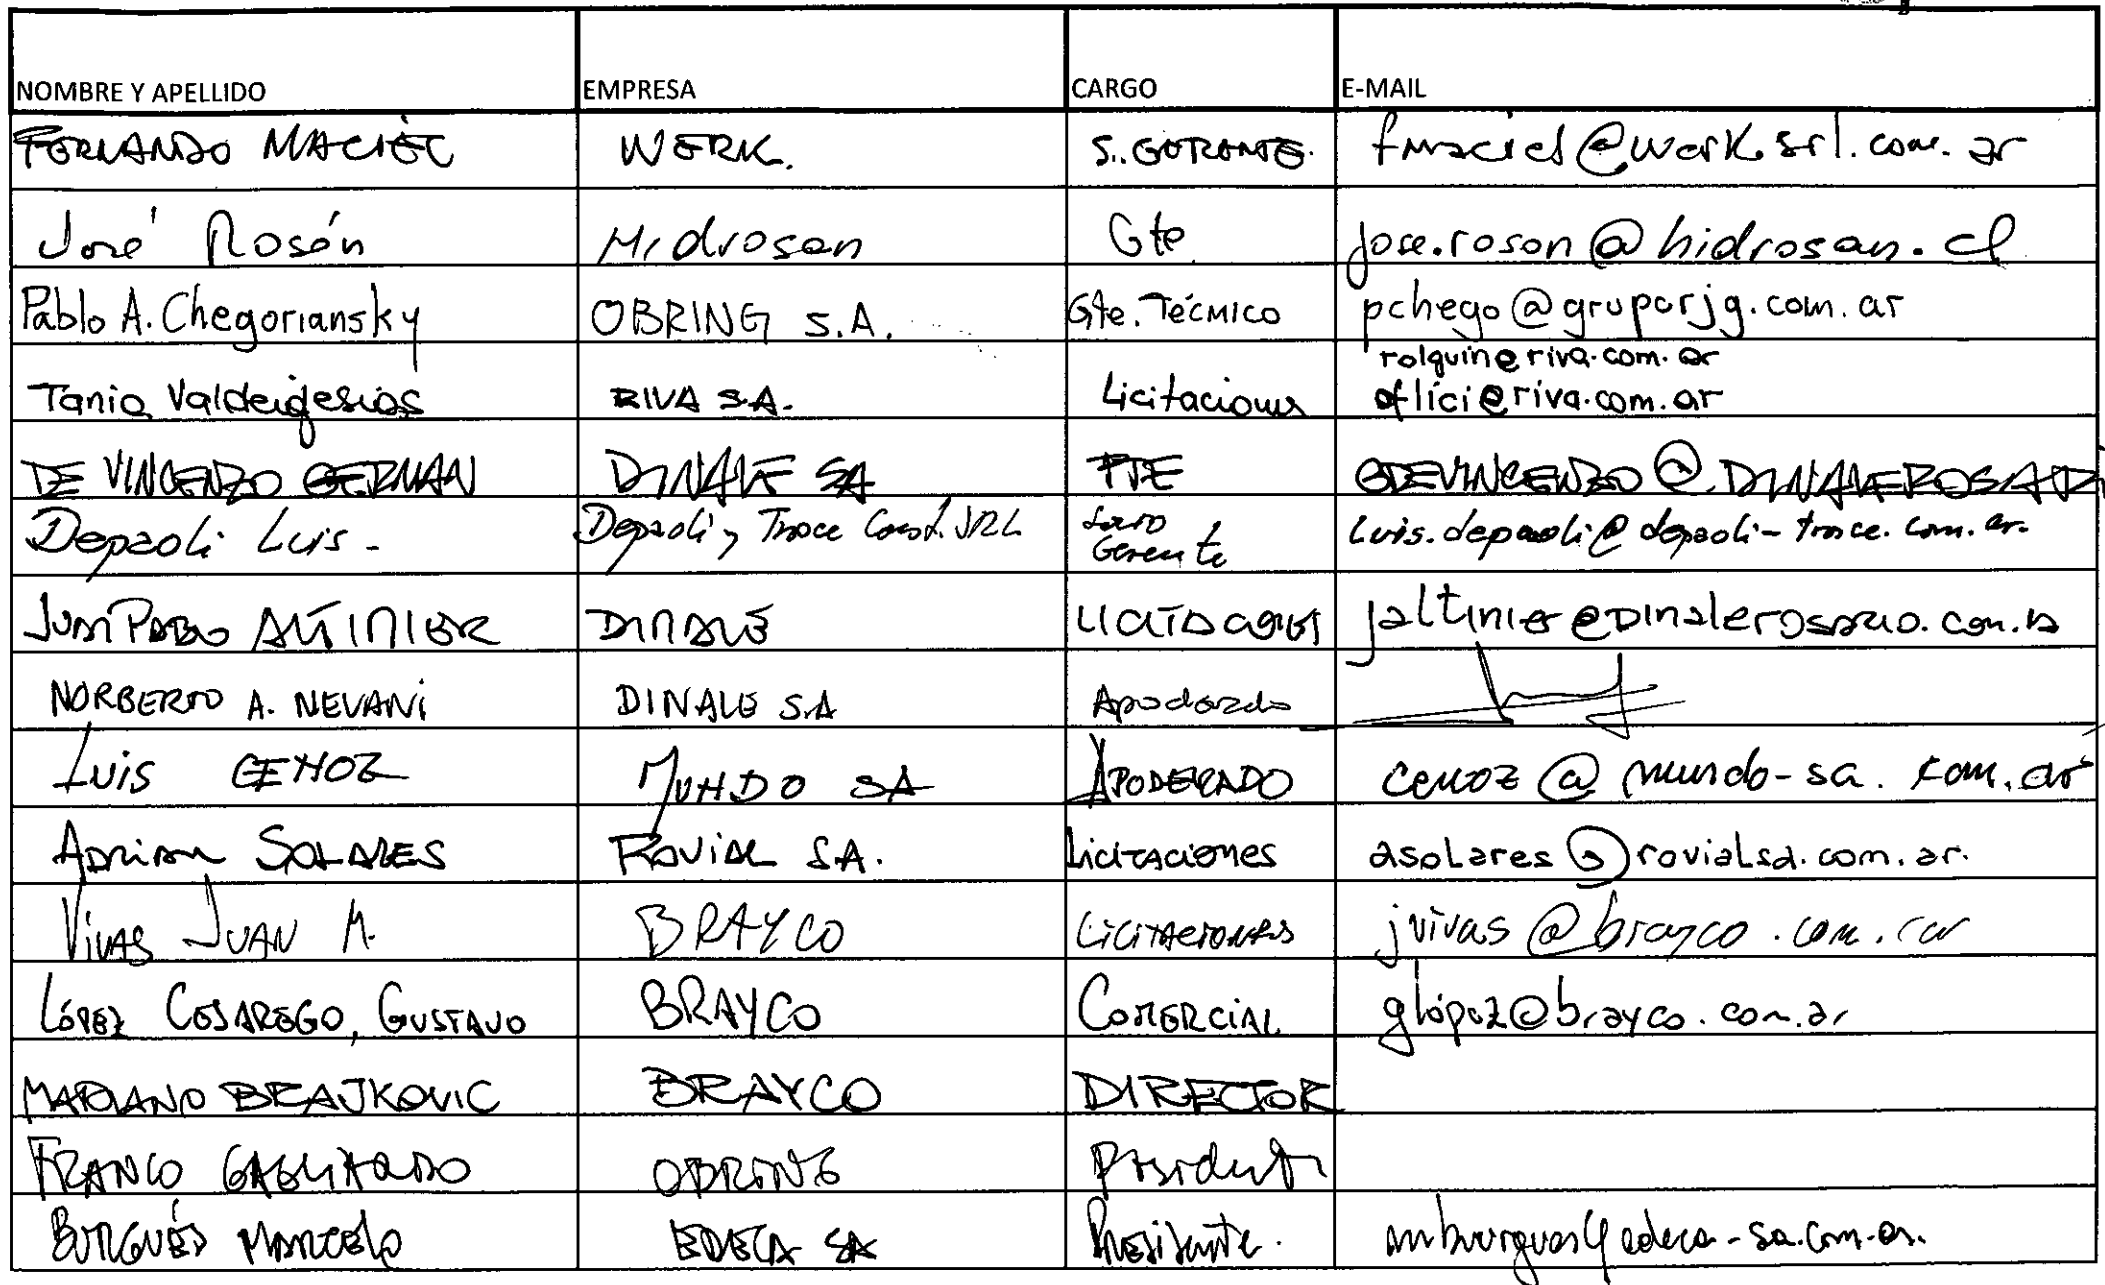 NOMBRE Y APELLIDO EMPRESA CARGO E-MAIL
FERNANDO MACIEL WERK. S. GERENTE. fmaciel@werksrl.com.ar
José Rosón Hidrosan Gte jose.roson@hidrosan.cl
Pablo A. Chegoriansky OBRING S.A. Gte. TÉCNICO pchego@gruporjg.com.ar
rolguin@riva.com.ar
Tania Valdeiglesias RIVA S.A. Licitaciones oflici@riva.com.ar
DE VINCENZO GERMAN DINALE SA PTE GDEVINCENZO@DINALEROSARI
Depaoli Luis. Depaoli y Troce Const. SRL Socio Gerente luis.depaoli@depaoli-troce.com.ar.
JUAN PABLO ALTINIER DINALE LICITACIONES jaltinier@DINALErosario.com.
NORBERTO A. NEVANI DINALE S.A Apoderado
Luis CENOZ MUNDO SA APODERADO cenoz@mundo-sa.com.ar
ADRIAN SOLARES ROVIAL S.A. Licitaciones asolares@rovialsa.com.ar.
Vivas JUAN M. BRAYCO LICITACIONES jvivas@brayco.com.ar
LÓPEZ CESAREGO, GUSTAVO BRAYCO COMERCIAL glopez@brayco.com.ar
MARIANO BRAJKOVIC BRAYCO DIRECTOR
FRANCO GAGLIARDO OBRING Presidente
BURGUÉS MARCELO EDECA SA Presidente. mburgues@edeca-sa.com.ar.